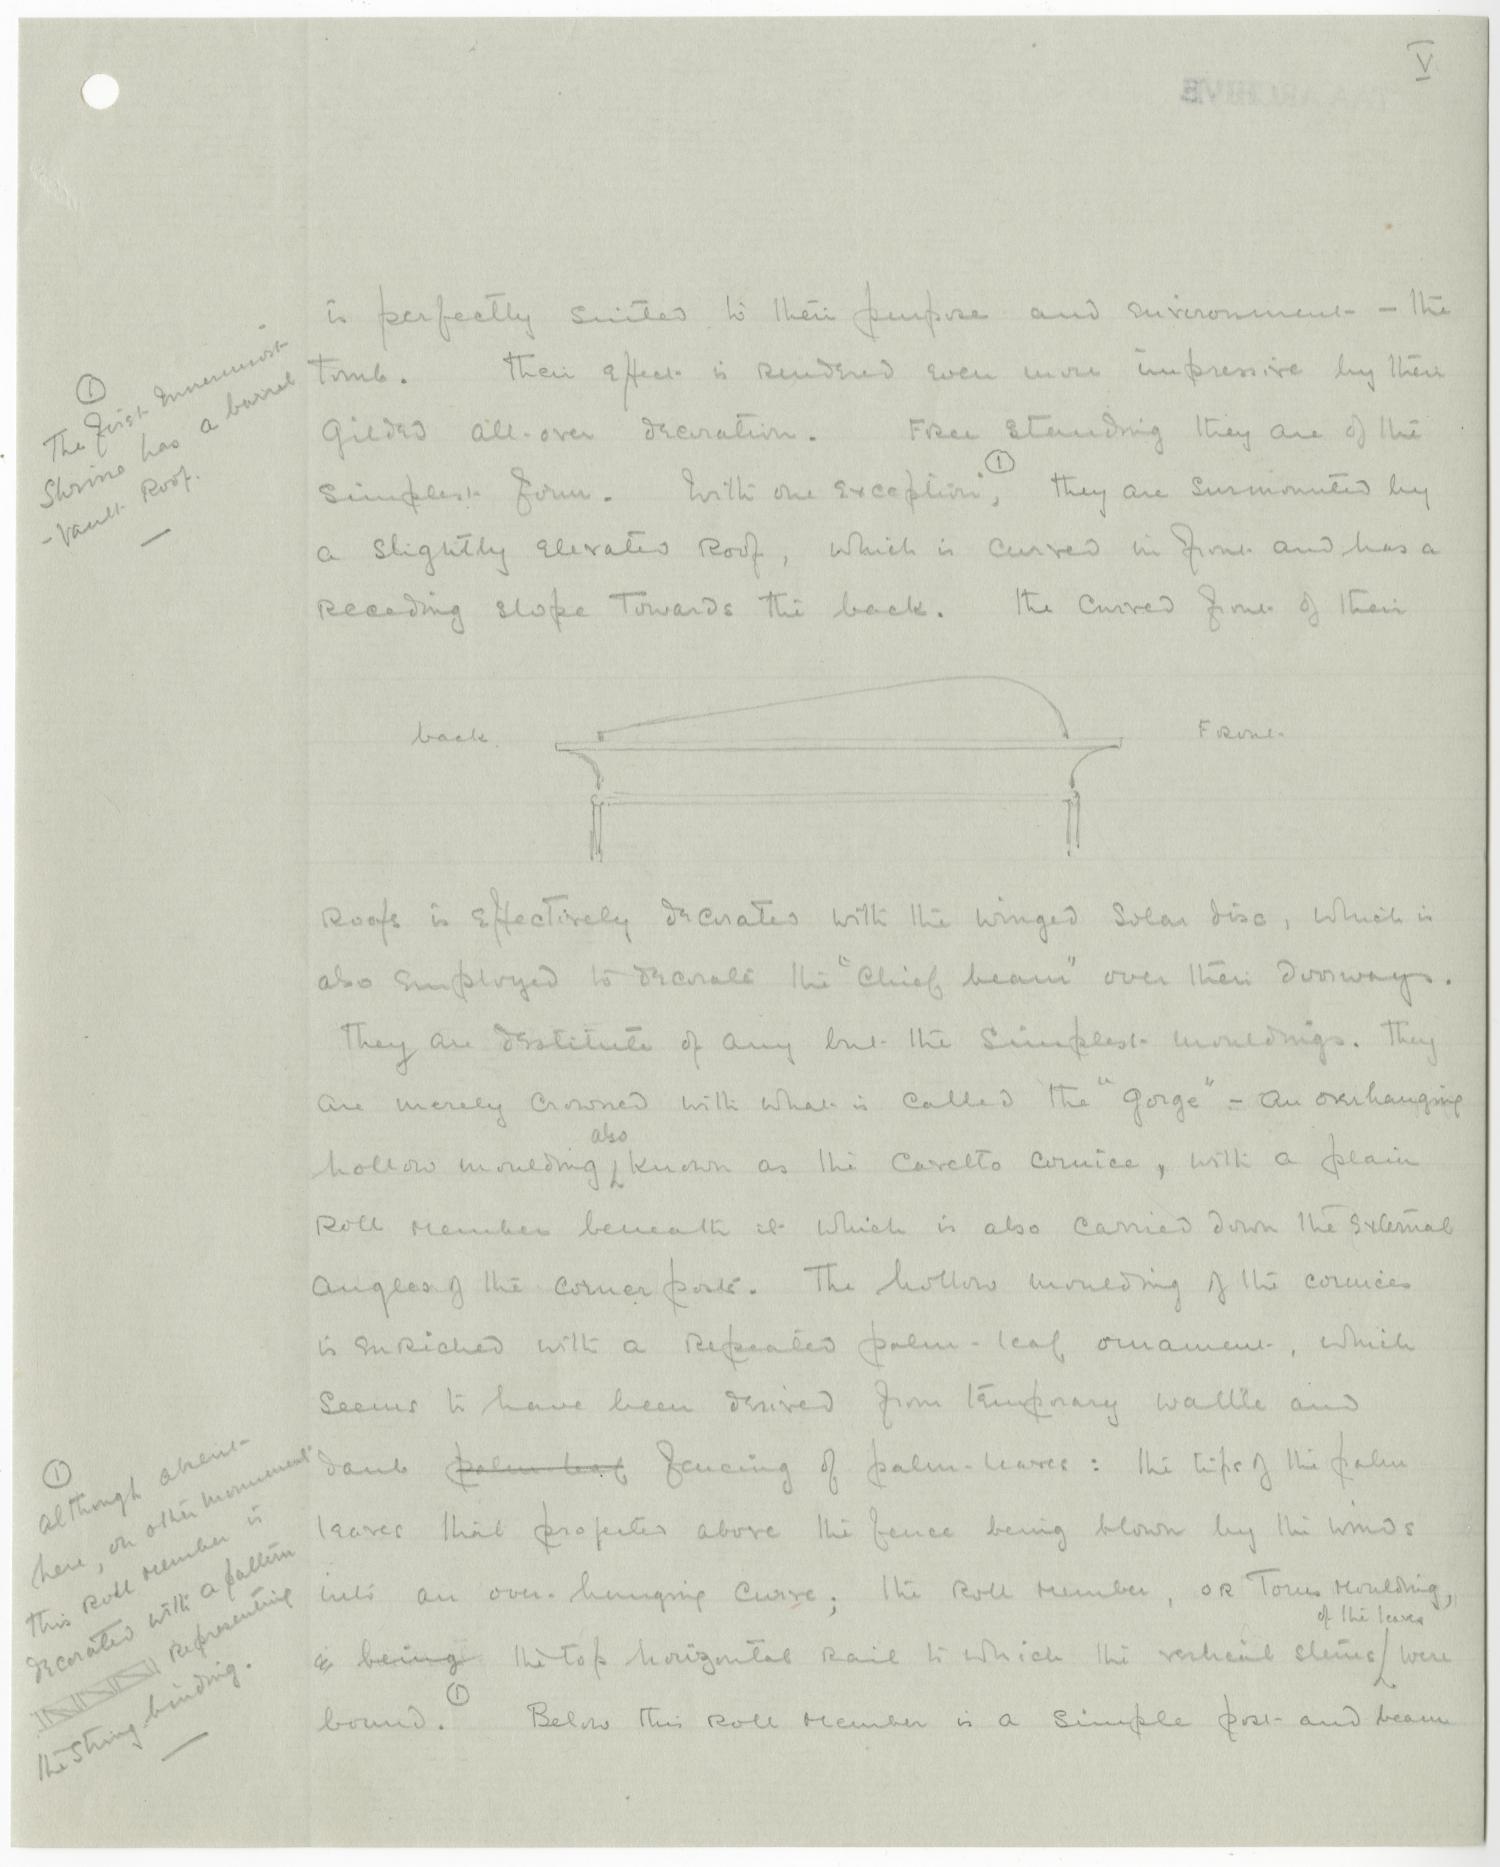 V
is perfectly suited to their purpose and environment – the
Tomb. Their effect is rendered even more impressive by their
gilded all-over decoration. Free standing they are of the
simplest form. With one exception ①, they are surmounted by
a slightly elevated roof, which is curved in front and has a
receeding slope towards the back. The curved front of their
①
The first Innermost
Shrine has a barrel
-vault roof.
back.
Front
roofs is effectively decorated with the winged solar disc, which is
also employed to decorate the "Chief beam" over their doorways.
They are destitute of any but the simplest mouldings. They
are merely crowned with what is called the "Gorge" – an overhanging
also
hollow mouldingʌ known as the Cavetto Cornice, with a plain
roll member beneath it which is also carried down the external
angles of the corner posts. The hollow moulding of the cornices
is enriched with a repeated palm-leaf ornament, which
seems to have been derived from temporary wattle and
daub palm-leaf fencing of palm-leaves: the tips of the palm
leaves that projected above the fence being blown by the winds
into an over-hanging curve; the roll member, or Torus Moulding,
of the leaves
& being the top horizontal rail to which the vertical stems were
bound. ① Below this roll member is a simple post and beam
①
although absent
here, on other monument
this roll member is
decorated with a pattern
representing
the string-binding.